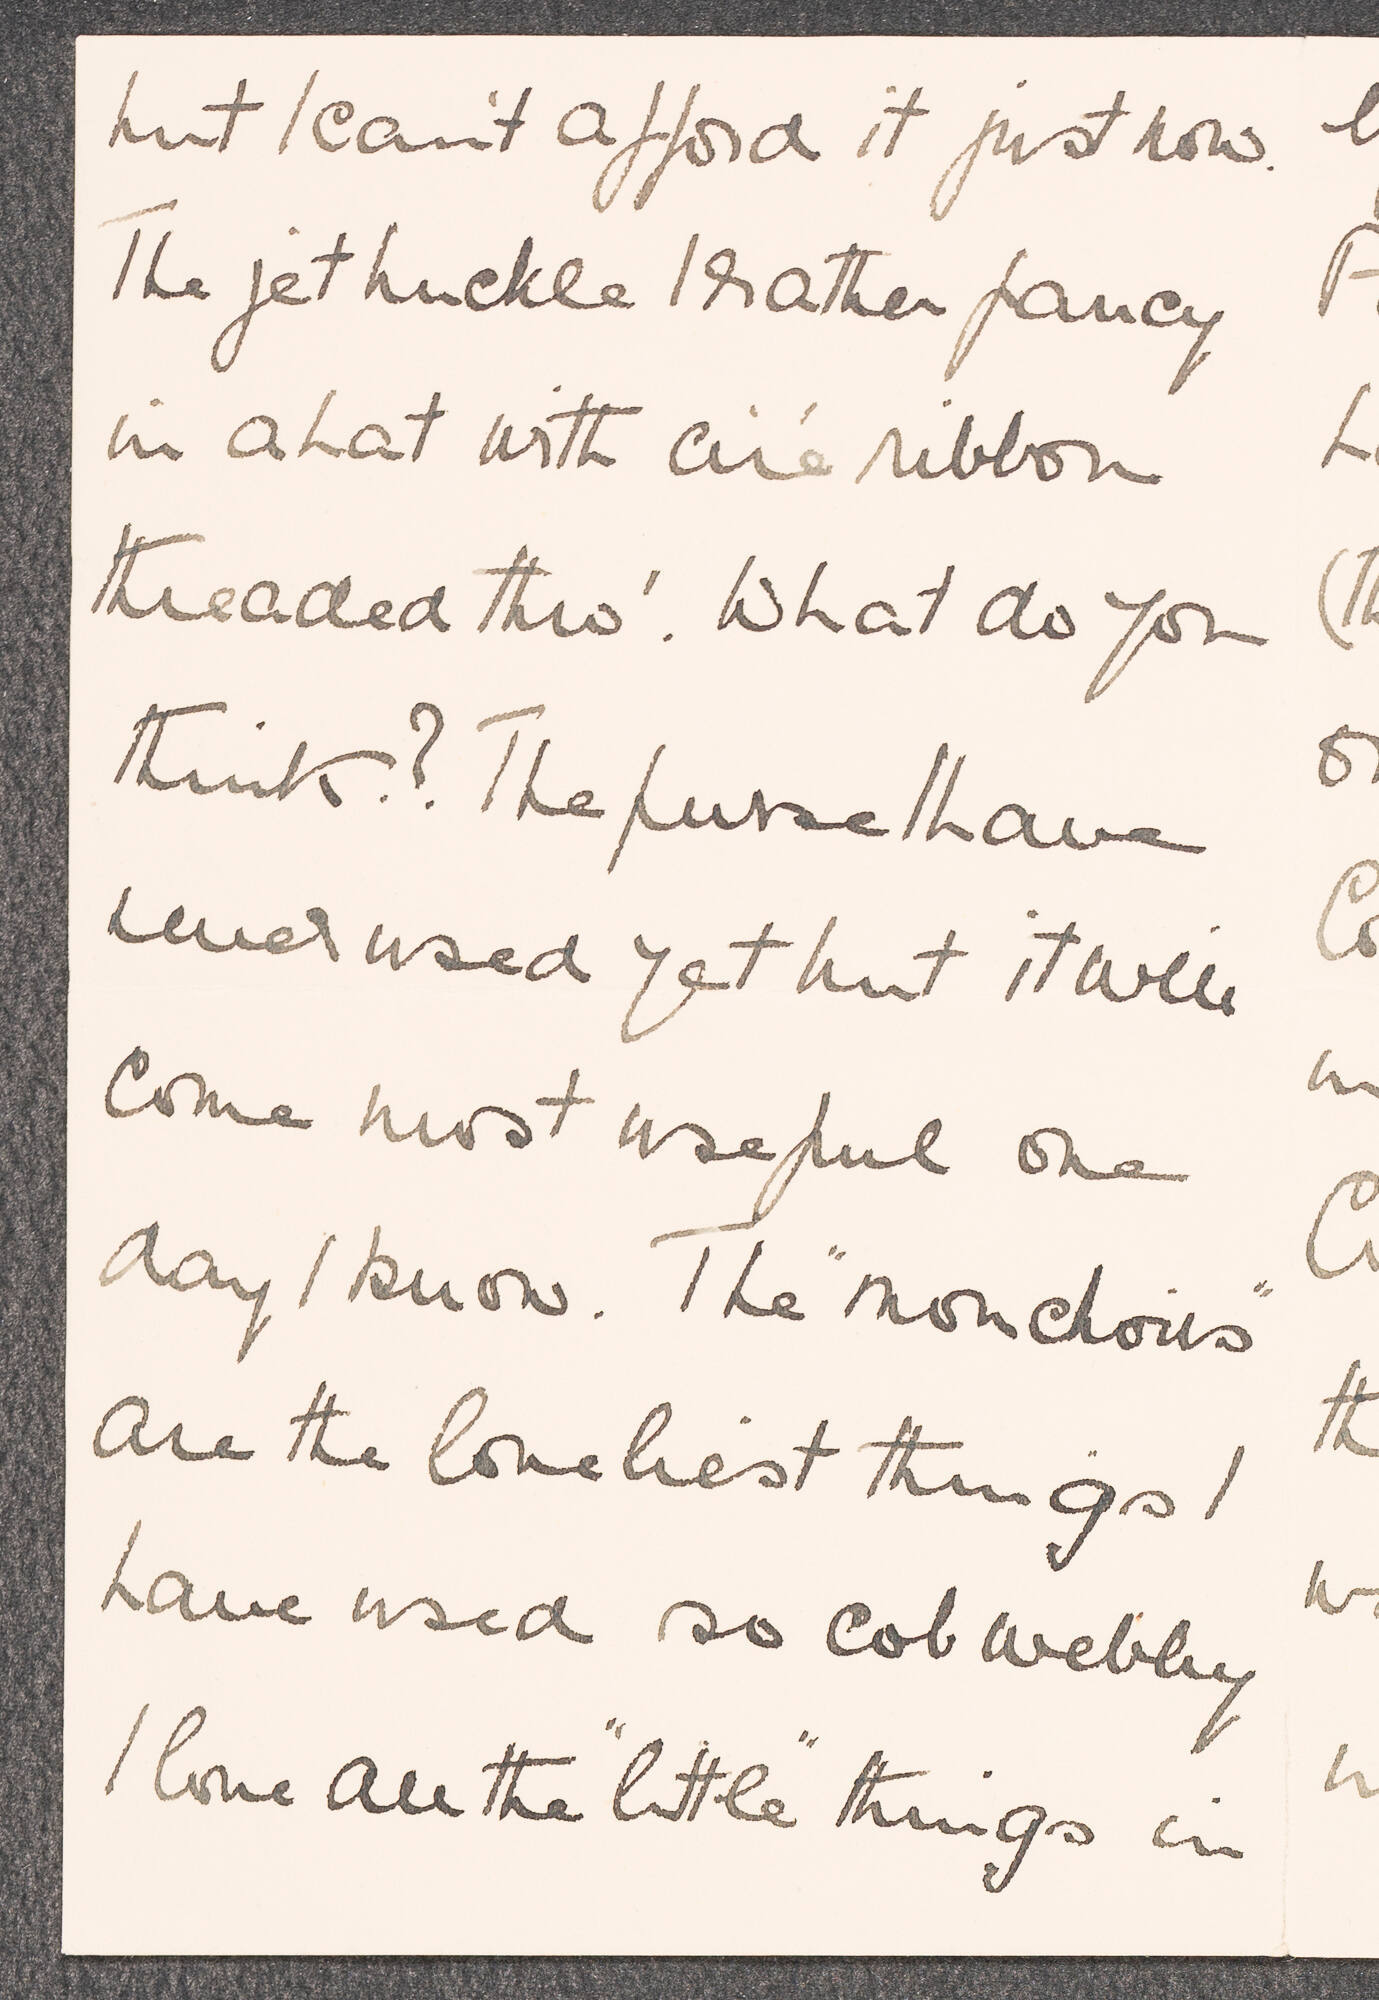 but I can't afford it just now.
The jet buckle I rather fancy
in a hat with ciré ribbon
threaded thro'. What do you
think.? The purse I have
never used yet but it will
come most useful one
day I know. The "mouchoirs"
are the loveliest things I
have used so cobwebby
I love all the "little" things in